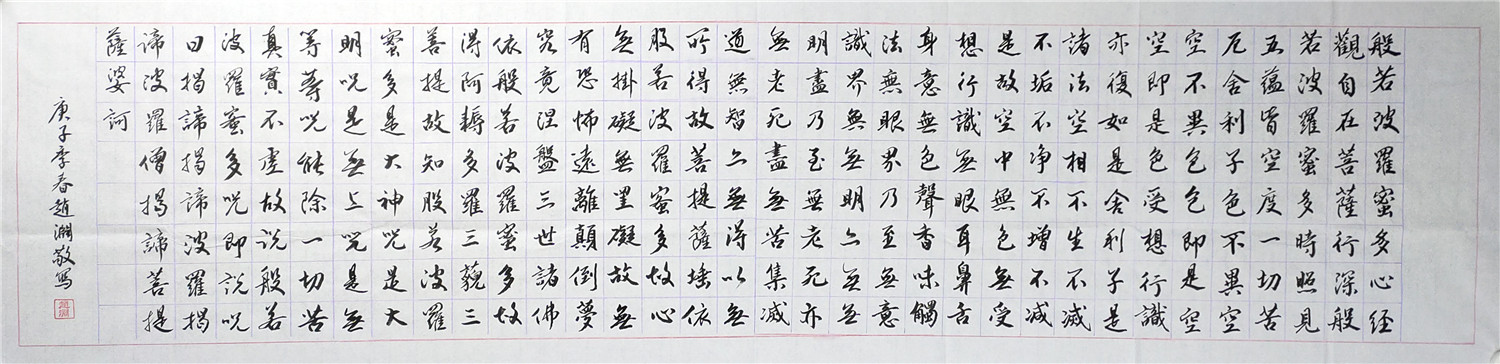 般若波羅蜜多心經
觀自在菩薩行深般
若波羅蜜多時照見
五蘊皆空度一切苦
厄舍利子色不異空
空不異色色即是空
空即是色受想行識
亦復如是舍利子是
諸法空相不生不滅
不垢不净不增不減
是故空中無色無受
想行識無眼耳鼻舌
身意無色聲香味觸
法無眼界乃至無意
識界無無明亦無無
明盡乃至無老死亦
無老死盡無苦集滅
道無智亦無得以無
所得故菩提薩埵依
般若波羅蜜多故心
無掛礙無罣礙故無
有恐怖遠離顛倒夢
究竟涅盤三世諸佛
依般若波羅蜜多故
得阿耨多羅三藐三
菩提故知般若波羅
蜜多是大神咒是大
明咒是無上咒是無
等等咒能除一切苦
真實不虛故説般若
波羅蜜多咒即説咒
曰揭諦揭諦波羅揭
諦波羅僧揭諦菩提
薩婆訶
庚子季春趙淵敬寫